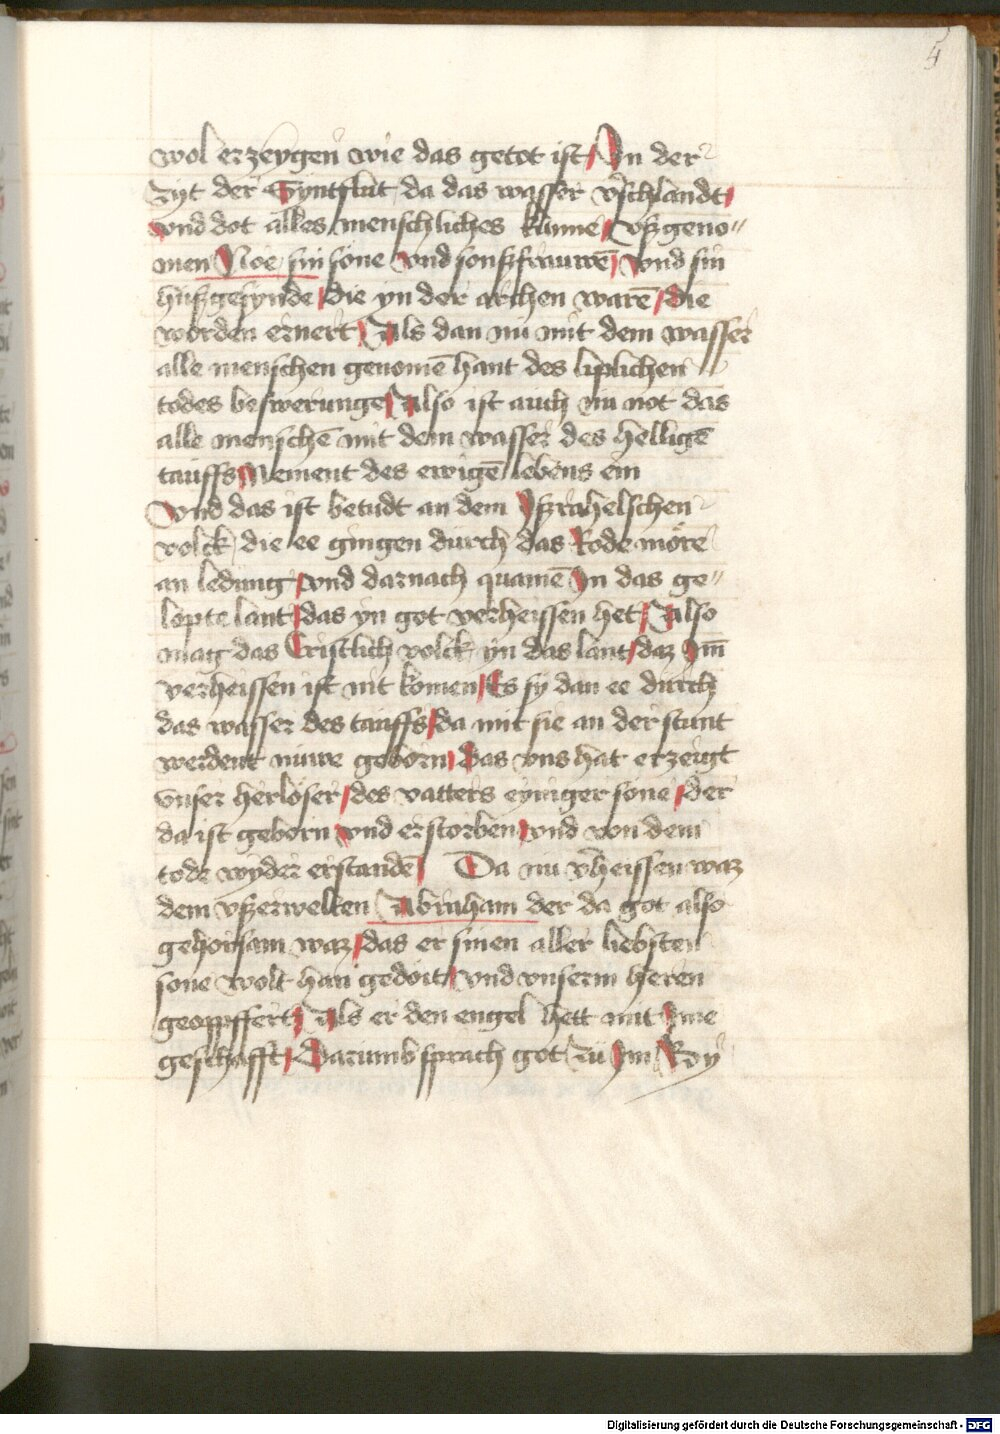 5
wol erzeygen wie das getot ist / In der
zyt der Syntflut da das wasser v̾schlandt /
vnd dot alles menschliches kunne / vßgeno〃
men Noe sin sone vnd sonßfrauwē / vnd sin
hußgesynde / die yn der archen warē / die
worden ernert / Als dan nu mit dem wasser
alle menschen genomē hant des liplichen
todes beswerunge / Also ist auch nu not das
alle menschē mit dem wasser des helligē
tauffs Nement des ewigē lebens ein
Vnd das ist betudt an dem Jsrahelschen
volck / die ee gingen durch das Rode möre
an ledung / vnd darnach quamē In das ge〃
lopte lant / das yn got verheissen het / Also
mag das Cristlich volck yn das lant / daz Im̄
verheissen ist nit komen / Es sy dan ee durch
das wasser des tauffs / da mit sie an der stunt
werdent nuwe geborn / Das vns hat erzeugt
vnser herlöser / des vatters eyniger sone / der
da ist geborn vnd erstorben / vnd von dem
tode wyder erstandē / Da nu v̾heissen waz
dem vßerwelten Abraham der da got also
gehorsam waz / das er sinen aller liebsten
sone wolt han gedoit / vnd vnserm heren
geopffert / Als er den engel hett mit Ime
geschafft / Darumb sprach got zu Im
Digitalisierung gefördert durch die Deutsche Forschungsgemeinschaft - DFG